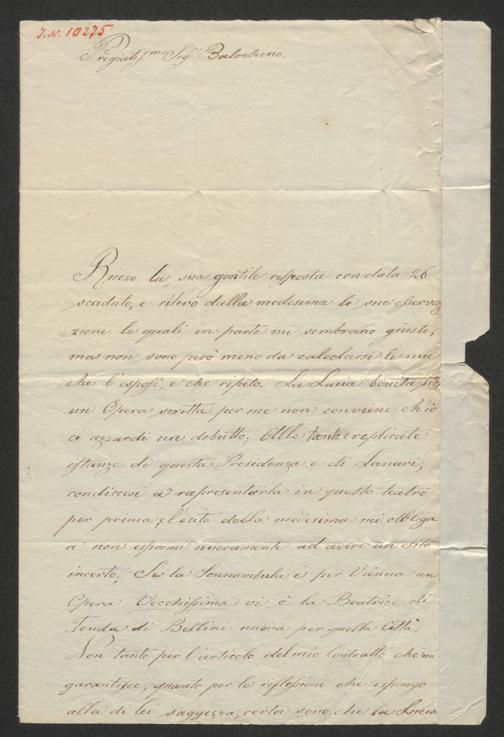 I.N. 10275
Pregiatiss.mo Sig.r Balochino.
Ricevo la sua gentile risposta con data 26
scaduto, e rilevo dalla medesima le sue osserva
zioni le quali in parte mi sembrano giuste,
ma non sono però meno da calcolarsi le mie
che l'esposi e che ripeto. La Lucia benchè sia
un Opera scritta per me non conviene ch'io
a azzardi un debutto; Alle tante replicate
istanze di questa Presidenza e di Lanari,
condiscesi a rappresentarla in questo teatro
per prima, e l'esito della medesima mi obbliga
a non espormi nuovamente ad avere un esito
incerto. Se la Sonnambula è per Vienna un
Opera Vecchissima vi è la Beatrice di
Tenda di Bellini nuova per quella Città.
Non tanto per l'articolo del mio Contratto che mi
garantisce, quanto per le riflessioni che espongo
alla di lei saggezza, certa sono che la Lucia